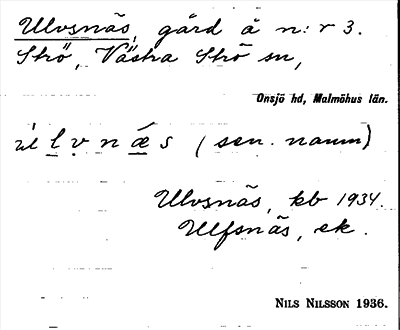 Ulvsnäs, gård å n:r 3.
Strö, Västra Strö sn,
Onsjö hd, Malmöhus län.
l v n ǽ s (sen. namn)
Ulvsnäs, kb 1934.
Ulfsnäs, ek.
NILS NILSSON 1936.